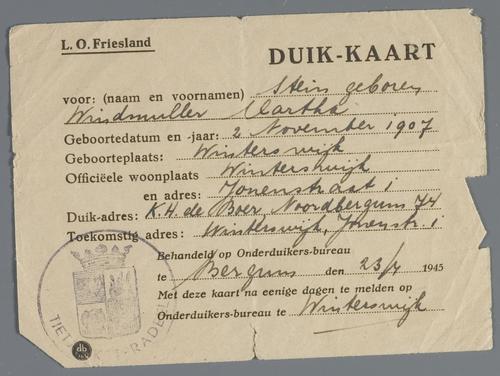 L. O. Friesland
DUIK-KAART
voor: (naam en voornamen) Stein geboren
Windmuller Martha
Geboortedatum en -jaar: 2 November 1907
Geboorteplaats: Winterswijk
Officiëele woonplaats Winterswijk
en adres: Jonenstraat 1
Duik-adres: K.H. de Boer, Noordbergum 74
Toekomstig adres: Winterswijk, 1
Behandeld op Onderduikers-bureau
te Bergum den 23/7 1945
Met deze kaart na eenige dagen te melden op
Onderduikers-bureau te Winterswijk